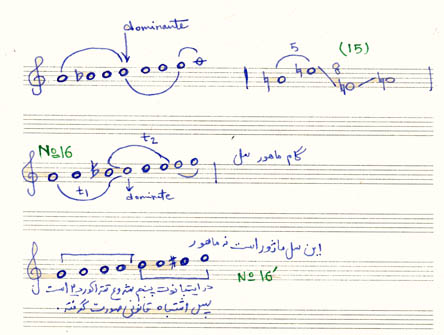 dominante
5 (15)
8
No 16 t2 گام ماهور سل
t1 dominte
این سل ماژور است نه ماهور
No 16'
در اینجا نوت پنجم شروع تتراکورد ۲ است
پس اشتباه قانونی صورت گرفته.